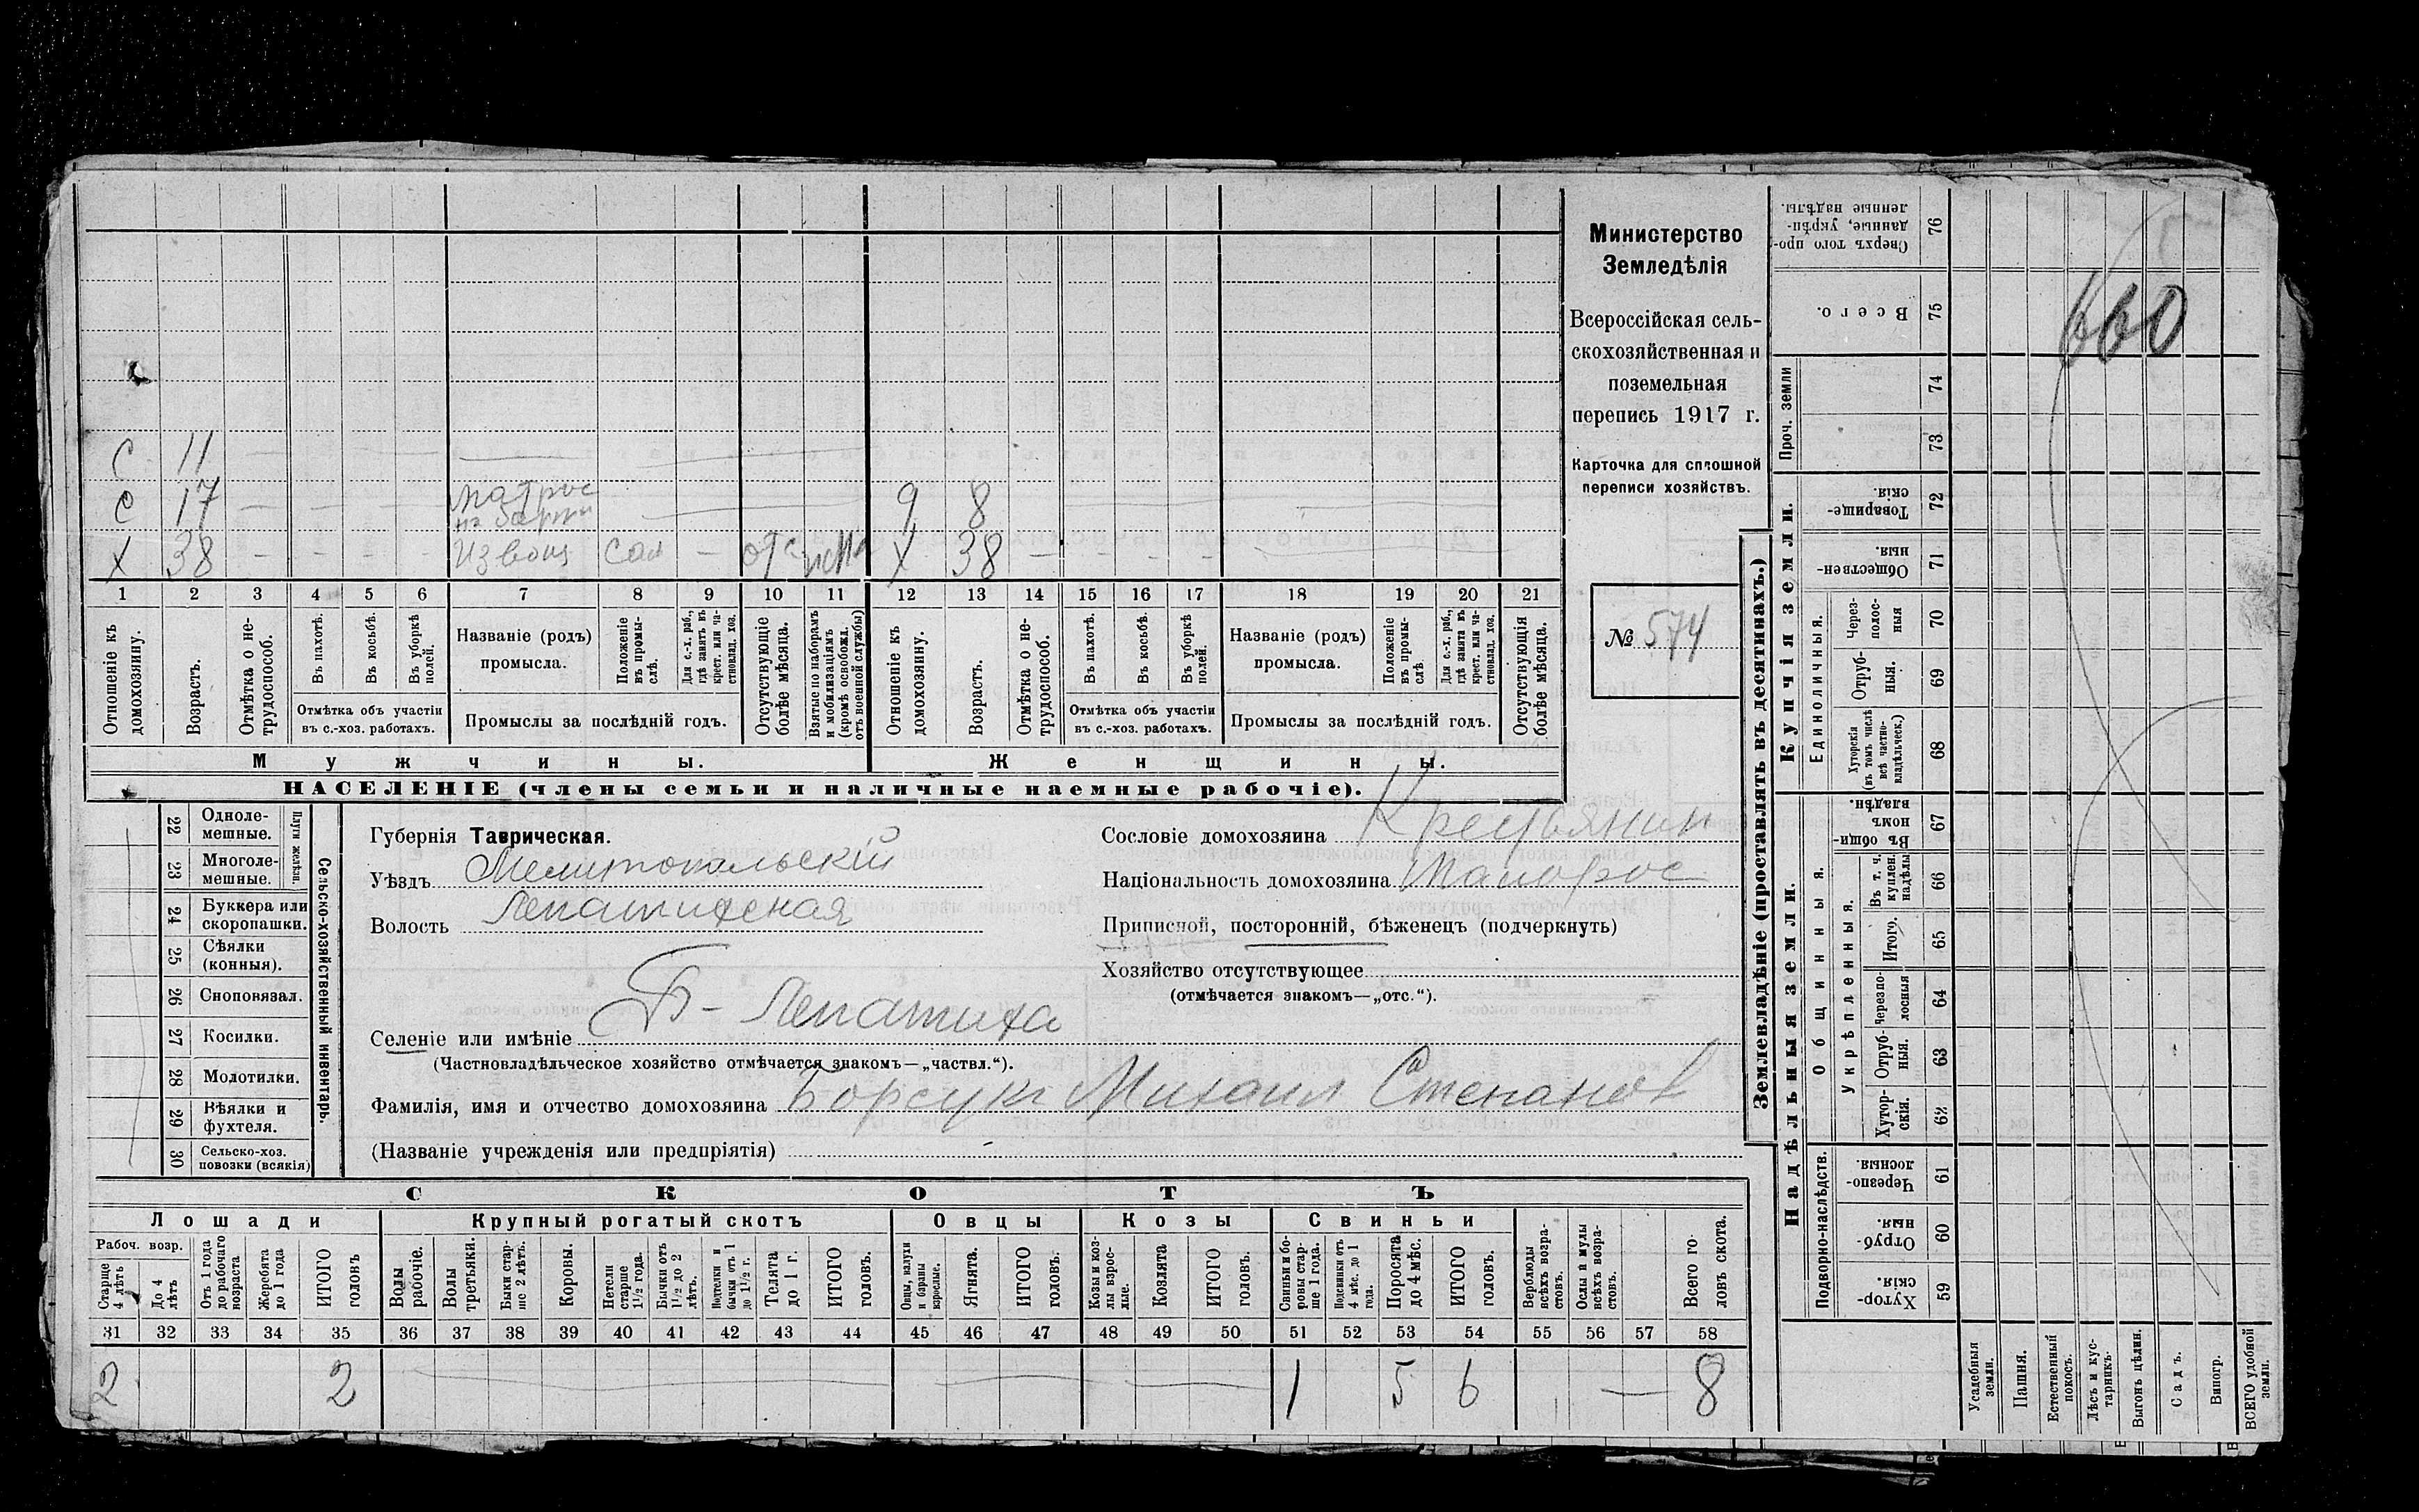 С 11
С 17 матрос
на барж 9 8
Х 38 Извощ соп отс Х 38
1 2 3 4 5 6 7 8 9 10 11 12 13 14 15 16 17 18 19 20 21
Отношеніе къ домохозяину.
Возрастъ.
Отмѣтка о не-
трудоспособ.
Въ пахотѣ.
Въ косьбѣ.
Въ уборкѣ
полей.
Отмѣтка объ участіи
въ с.-хоз. работахъ.
Названіе (родъ)
промысла.
Положеніе
въ промы-
слѣ.
Для с.-х. раб.,
гдѣ занятъ въ
крест. или ча-
стновлад. хоз.
Промыслы за послѣдній годъ.
Отсутствующіе
болѣе мѣсяца.
Взятые по наборамъ
и мобилизаціямъ
(кромѣ освобожд.
отъ военной службы)
Отношеніе къ
домохозяину.
Возрастъ.
Отмѣтка о не-
трудоспособ.
Въ пахотѣ.
Въ косьбѣ.
Въ уборкѣ
полей.
Отмѣтка объ участіи
въ с.-хоз. работахъ.
Названіе (родъ)
промысла.
Положеніе
въ промы-
слѣ.
Для с.-х. раб.,
гдѣ занята въ
крест. или ча-
стновлад. хоз.
Промыслы за послѣдній годъ.
Отсутствующія
болѣе мѣсяца.
Мужчины.
Женщины.
НАСЕЛЕНІЕ (члены семьи и наличные наемные рабочіе).
Министерство
Земледѣлія
Всероссійская сель-
скохозяйственная и
поземельная
перепись 1917 г.
Карточка для сплошной
переписи хозяйствъ.
№ 574
22 Одноле-
мешные.
23 Многоле-
мешные.
Плуги желѣзн.
24 Буккера или
скоропашки.
25 Сѣялки
(конныя).
26 Сноповязал.
27 Косилки.
28 Молотилки.
29 Вѣялки и
фухтеля.
30 Сельско-хоз.
повозки (всякія)
Сельско-хозяйственный инвентарь.
Губернія Таврическая.
Уѣздъ Мелитопольскій
Волость Лепатихская
Селеніе или имѣніе Б - Лепатиха
(Частновладѣльческое хозяйство отмѣчается знакомъ—„частвл.“).
Фамилія, имя и отчество домохозяина Борсукъ Михаил Степанов
(Названіе учрежденія или предпріятія)
Сословіе домохозяина Крестьянин
Національность домохозяина Малорос
Приписной, посторонній, бѣженецъ (подчеркнуть)
Хозяйство отсутствующее
(отмѣчается знакомъ—„отс.“).
СКОТЪ
Лошади
Крупный рогатый скотъ
Овцы
Козы
Свиньи
Рабоч. возр.
Старше
4 лѣтъ
До 4
лѣтъ
Отъ 1 года
до рабочаго
возраста
Жеребята
до 1 года
ИТОГО
головъ
Волы
рабочіе.
Волы
третьяки.
Быки стар-
ше 2 лѣтъ.
Коровы.
Нетели
старше
1 1/2 года.
Бычки отъ
1 1/2 до 2
лѣтъ.
Подтелки и
бычки отъ 1
до 1 1/2 г.
Телята
до 1 г.
ИТОГО
головъ.
Овцы, валухи
и бараны
взрослые.
Ягнята.
ИТОГО
головъ.
Козы и коз-
лы взрос-
лые.
Козлята
ИТОГО
головъ.
Свиньи и бо-
ровы стар-
ше 1 года.
Подсвинки отъ
4 мѣс. до 1
года.
Поросята
до 4 мѣс.
ИТОГО
головъ.
Верблюды
всѣхъ возра-
стовъ.
Ослы и мулы
всѣхъ возра-
стовъ.
Всего го-
ловъ скота.
31 32 33 34 35 36 37 38 39 40 41 42 43 44 45 46 47 48 49 50 51 52 53 54 55 56 57 58
2 2 1 5 6 8
Землевладѣніе (проставлять въ десятинахъ.)
Сверхъ того про-
данные, укрѣп-
ленные надѣлы. 76
Всего. 75
Проч. земли
74
73
Купчія земли.
Товарище-
скія. 72
Обществен-
ныя. 71
Единоличныя.
Через-
полос-
ныя 70
Отруб-
ныя. 69
Хуторскія
(въ томъ числѣ
всѣ частно-
владѣльческ.) 68
Надѣльныя земли.
Общинныя.
Въ общин-
номъ
владѣн. 67
Укрѣпленныя.
Въ т. ч.
куплен.
надѣлы 66
Итого. 65
Черезпо-
лосныя 64
Отруб-
ныя. 63
Хутор-
скія. 62
Подворно-наслѣдств.
Черезпо-
лосныя. 61
Отруб-
ныя. 60
Хутор-
скія. 59
660
Усадебныя
земли.
Пашня.
Естественный
покосъ.
Лѣсъ и кус-
тарникъ.
Выгонъ цѣлин.
Садъ.
Виногр.
ВСЕГО удобной
земли.